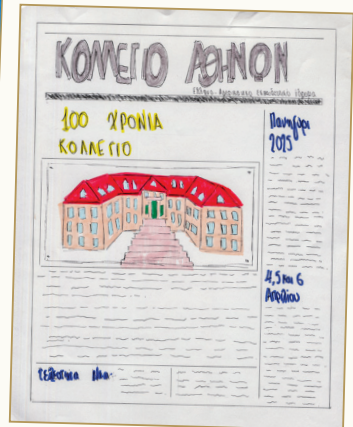 ΚΟΛΛΕΓΙΟ ΑΘΗΝΩΝ
100 ΧΡΟΝΙΑ
ΚΟΛΛΕΓΙΟ
Πανηγύρι
2025
4, 5 και 6
Απριλίου